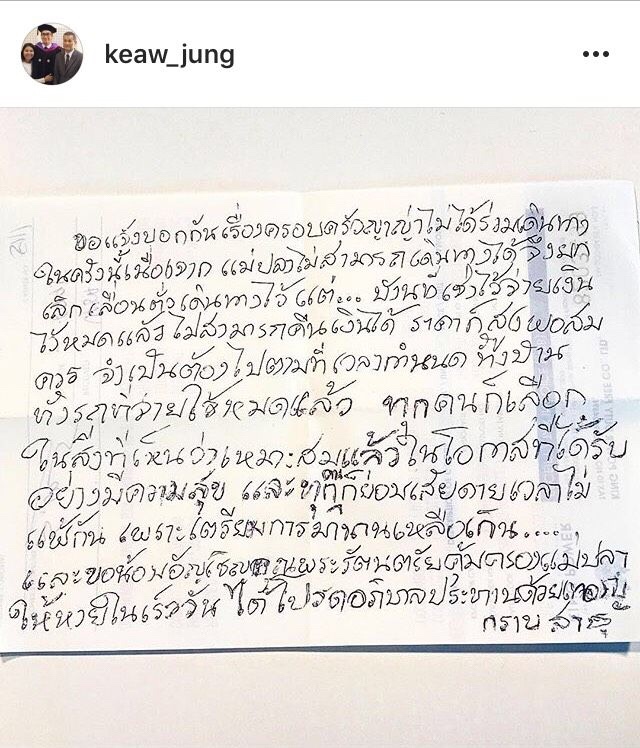 keaw_jung
ขอแจ้งบอกกันเรื่องครอบครัวญาญ่าไม่ได้ร่วมเดินทาง
ในครั้งนี้เนื่องจาก แม่ปลาไม่สามารถเดินทางได้ จึงยก
เลิกเลื่อนตั๋วเดินทางไว้ แต่... บ้านที่เช่าไว้จ่ายเงิน
ไว้หมดแล้ว ไม่สามารถคืนเงินได้ ราคาก็สูงพอสม
ควร จำเป็นต้องไปตามที่เวลากำหนด ทั้งบ้าน
ทั้งรถที่จ่ายใช้หมดแล้ว ทุกคนก็เลือก
ในสิ่งที่เห็นว่าเหมาะสมแล้วในโอกาสที่ได้รับ
อย่างมีความสุข และทุกคนก็ย่อมเสียดายเวลาไม่
แพ้กัน เพราะเตรียมการมานานเหลือเกิน.....
และขอน้อมอัญเชิญคุณพระรัตนตรัยคุ้มครองแม่ปลา
ให้หายในเร็ววัน ได้โปรดอภิบาลประทานด้วยเทอญ
กราบ สาธุ